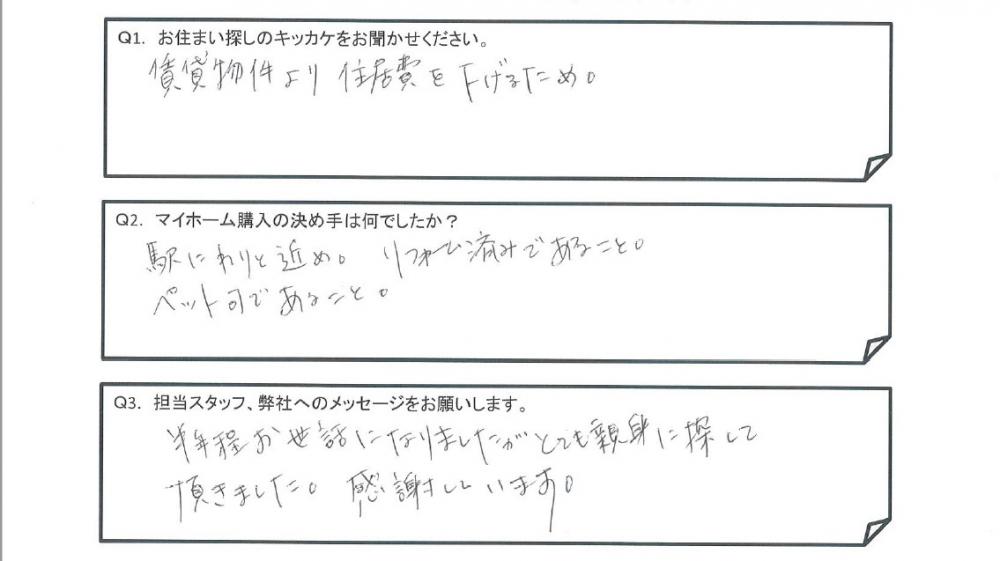 Q1. お住まい探しのキッカケをお聞かせください。
賃貸物件より住居費を下げるため。
Q2. マイホーム購入の決め手は何でしたか？
駅にわりと近め。リフォーム済みであること。
ペット可であること。
Q3. 担当スタッフ、弊社へのメッセージをお願いします。
半年程お世話になりましたがとても親身に探して
頂きました。感謝しています。